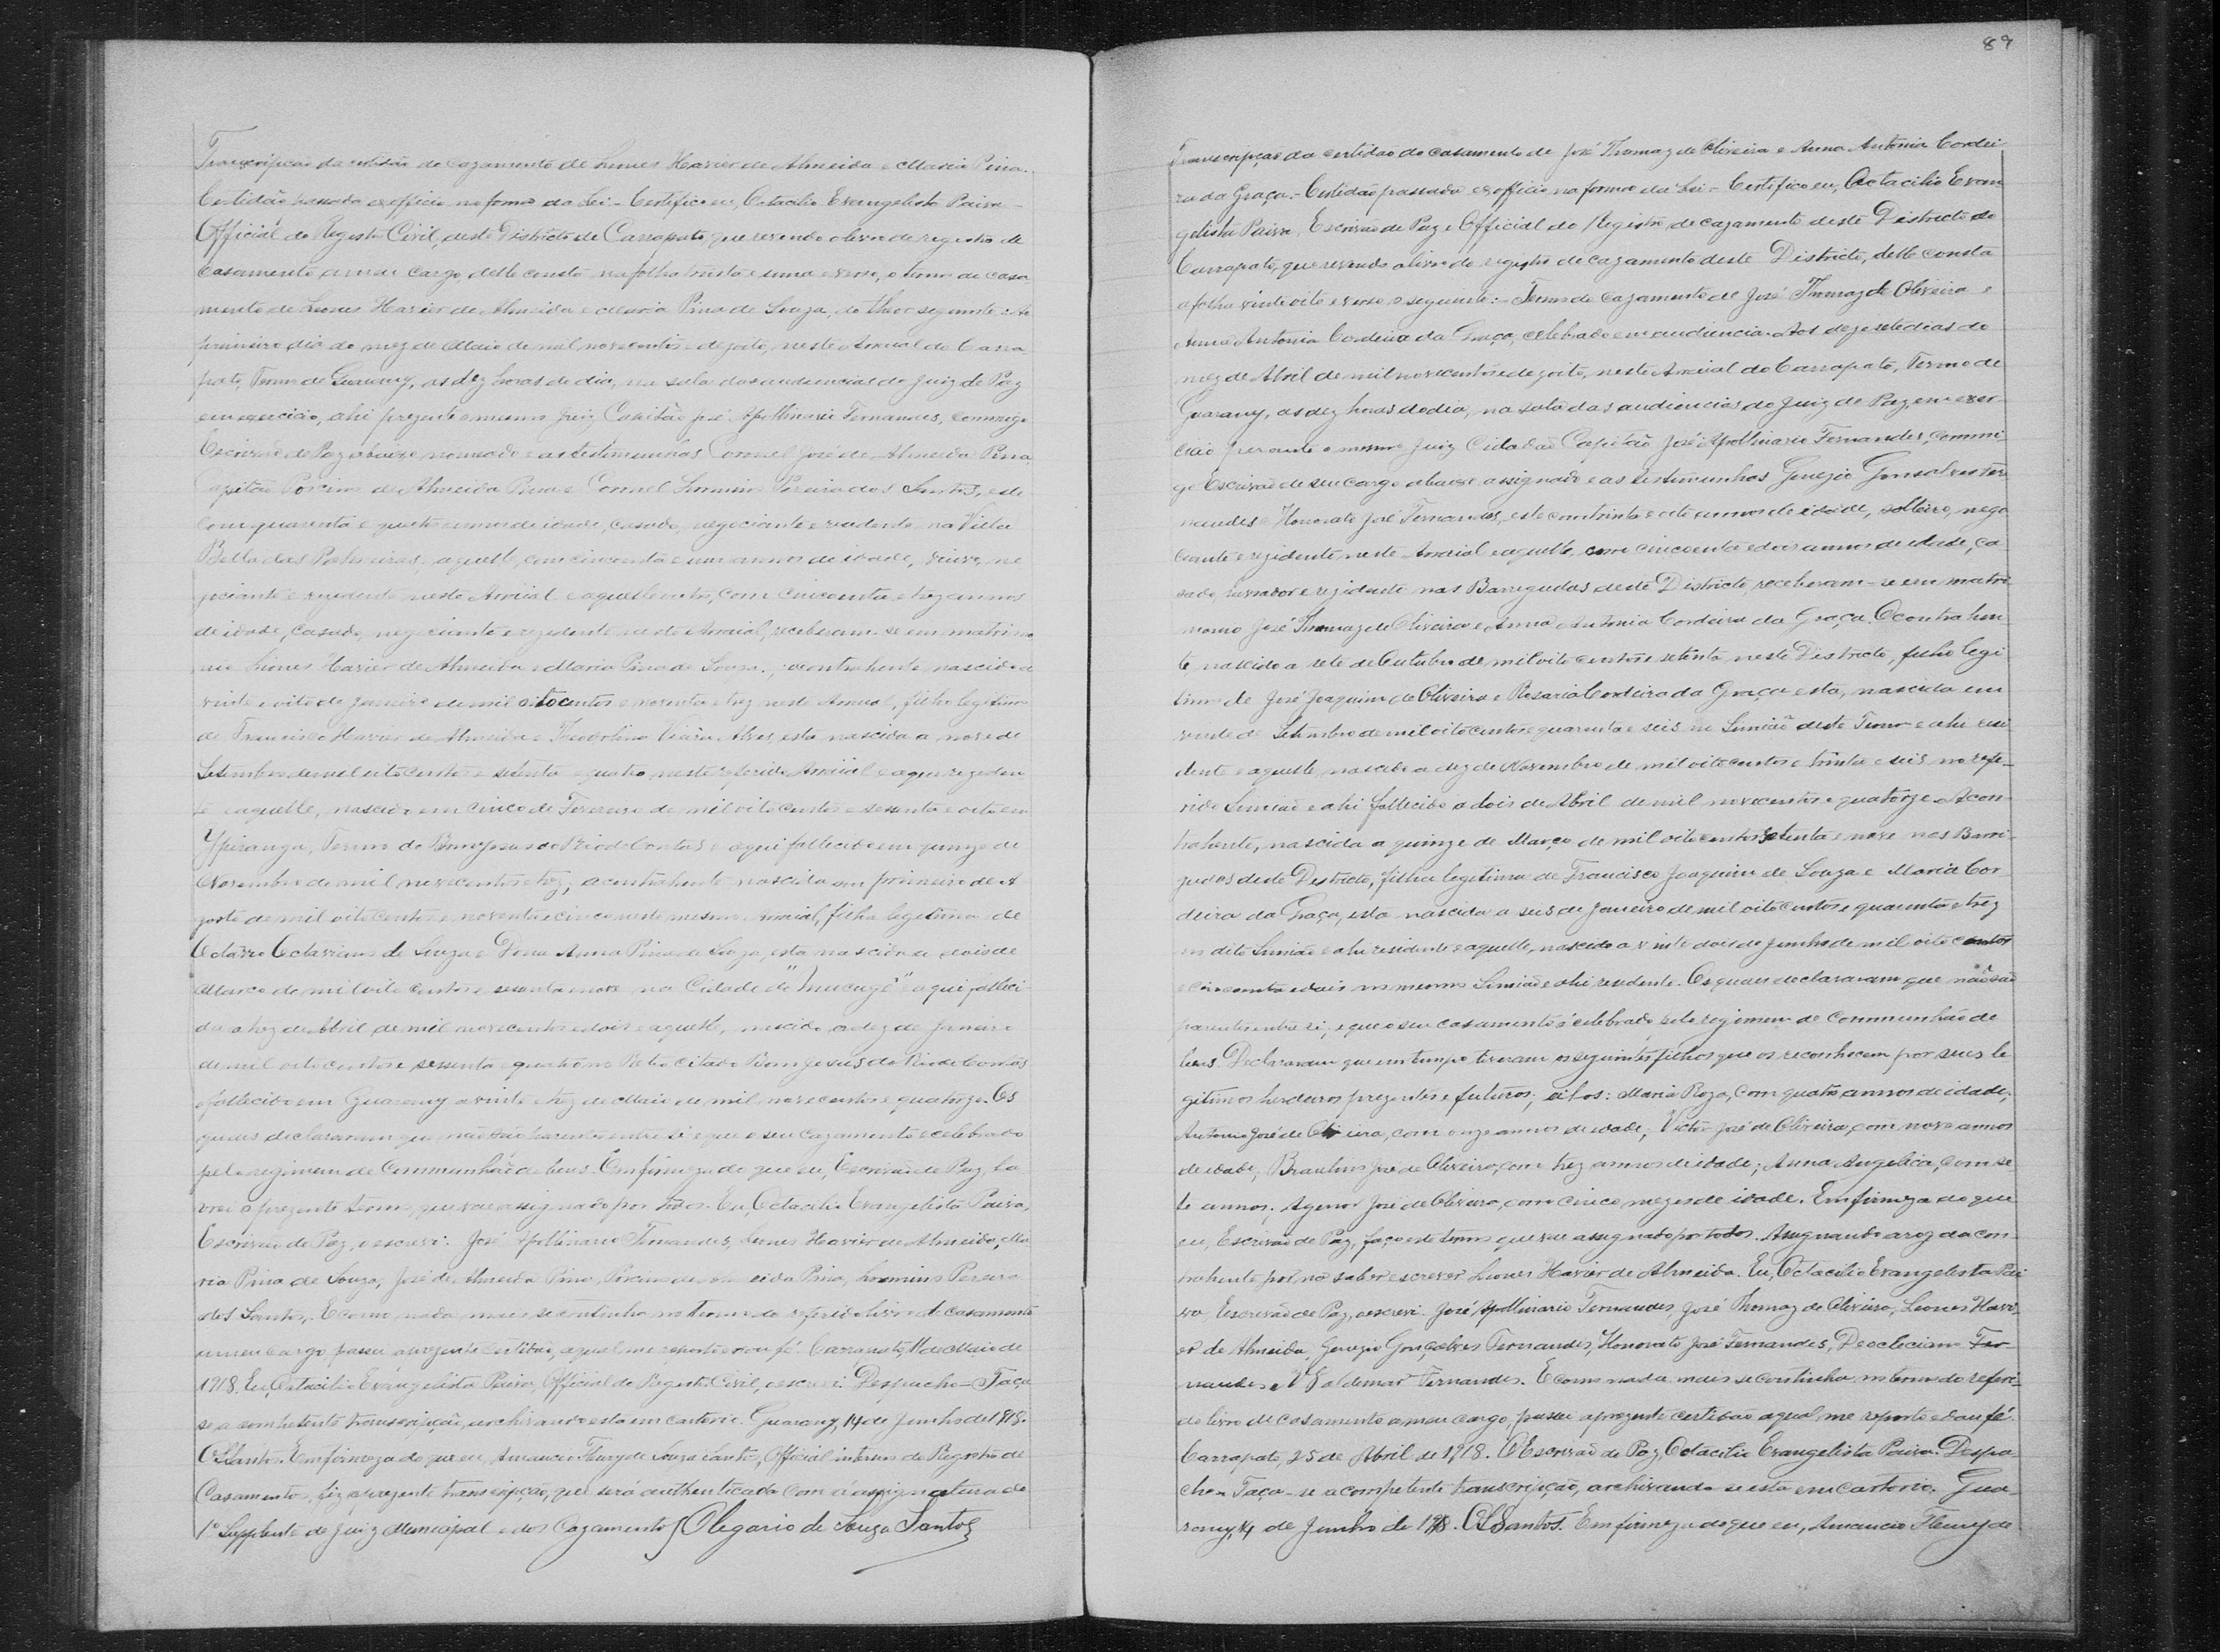 Transcripção da certidão de cazamento de Leones Xavier de Almeida e Maria Pina.
Certidão passada ex officio na forma da Lei - Certifico eu, Octacilio Evangelista Paiva
Official do Registo Civil, deste Districto de Carrapato, que revendo o livro de registro de
Casamento a meu cargo, delle consta na folha trinta e uma e verso, o termo de casa
mento de Leones Xavier de Almeida e Maria Pina de Souza, do theor seguinte: Ao
primeiro dia do mez de Maio de mil novecentos e dezoito, neste Arraial do Carra
pato, Termo de Guarany, as dez horas do dia, na sala das audiencias do Juiz de Paz
em exercicio, ahi prezente o mesmo Juiz Capitão José Apollinario Fernandes, commigo
Escrivão de Paz abaixo nomeado e as testemunhas Coronel José de Almeida Pina,
Capitão Porcino de Almeida Pina e Coronel Pereira dos Santos, este
com quarenta e quatro annos de idade, casado, negociante e residente na Villa
Bella das Palmeiras, aquelle, com cincoenta e um annos de idade, viuvo, ne
gociante e rezidente neste Arraial e aquelle outro, com cincoenta e trez annos
de idade, casado, negociante e rezidente neste Arraial, receberam-se em matrimo
nio Leones Xavier de Almeida e Maria Pina de Souza; o contrahente, nascido a
vinte e oito de Janeiro de mil oitocentos e noventa e trez neste Arraial, filho legitimo
de Francisco Xavier de Almeida e Vieira Alves, esta nascida a nove de
Setembro de mil oitocentos e setenta e quatro neste referido Arraial e aqui reziden
te e aquelle, nascido em cinco de Fevereiro de mil oitocentos e sessenta e oito em
Ypiranga, Termo do Bom Jesus do Rio de Contas e aqui fallecido em quinze de
Novembro de mil novecentos e trez, a contrahente nascida em primeiro de A
gosto de mil oitocentos e noventa e cinco neste mesmo Arraial, filha legitima de
Octavio Octaviano de Souza e Dona Anna Pina de Souza, esta nascida a dois de
Março de mil oitocentos e sessenta e nove na Cidade de "Mucugê" e aqui falleci
da a trez de Abril de mil novecentos e dois e aquelle, nascido a dez de Janeiro
de mil oitocentos e sessenta e quatro no Retro citado Bom Jesus do Rio de Contas
e fallecido em Guarany a vinte e trez de Maio de mil novecentos e quatorze. Os
quaes declararam que não são parentes entre si e que o seu cazamento é celebrado
pelo regimem de Communhão de bens. Em firmeza do que eu, Escrivão de Paz, la
vrei o prezente termo, que vae assignado por todos. Eu, Octacilio Evangelista Paiva,
Escrivão de Paz, o escrevi. José Apollinario Fernandes, Leones Xavier de Almeida, Ma
ria Pina de Souza, José de Almeida Pina, Porcino de Almeida Pina, Pereira
dos Santos. E como nada mais se continha no termo do referido livro de casamento
a meu cargo, passei a prezente certidão, a qual me reporto e dou fé. Carrapato, 11 de Maio de
1918. Eu, Octacilio Evangelista Paiva, Official do Registo Civil, o escrevi. Despacho - Faça
se a competente transcripção, archivando esta em cartorio. Guarany, 14 de Junho de 1918.
O S Santos. Em firmeza do que eu, Amancio Fleury de Souza Santos, Official interino do Registro de
Casamentos, fiz a prezente transcripção, que será authenticada com a assignatura do
1º Supplente do Juiz Municipal e dos Cazamentos Olegario de Souza Santos
89
Transcripção da certidão do casamento de José Thomaz de Oliveira e Anna Antonia Cordei
ra da Graça. - Certidão passada ex officio na forma da Lei - Certifico eu, Octacilio Evan
gelista Paiva, Escrivão de Paz e Official do Registro de cazamento deste Districto do
Carrapato, que revendo o livro do registro de cazamento deste Districto, delle consta
a folha vinte oito e verso o seguinte: - Termo de Cazamento de José Thomaz de Oliveira e
Anna Antonia Cordeira da Graça, celebrado em audiencia. Aos dezesete dias do
mez de Abril de mil novecentos e dezoito, neste Arraial do Carrapato, Termo de
Guarany, as dez horas do dia, na sala das audiencias do Juiz de Paz, em exer
cicio perante o mesmo Juiz Cidadão Capitão José Apollinario Fernandes, commi
go Escrivão de seu cargo abaixo assignado e as testemunhas Genezio Gonsalves Fer
nandes e Honorato José Fernandes, este com trinta e oito annos de idade, solteiro, nego
ciante e rezidente neste Arraial e aquelle, com cincoenta e dois annos de idade, ca
sado, lavrador e rezidente nas Barrigudas deste Districto, receberam-se em matri
monio José Thomaz de Oliveira e Anna Antonia Cordeira da Graça. O contrahen
te nascido a sete de Outubro de mil oitocentos e setenta neste Districto, filho legi
timo de José Joaquim de Oliveira e Rosaria Cordeira da Graça, esta, nascida em
vinte de Setembro de mil oitocentos e quarenta e seis no Simião deste Termo e ahi resi
dente e aquelle nascido a dez de Novembro de mil oitocentos e trinta e seis no refe-
rido Simião e ahi fallecido a dois de Abril de mil novecentos e quatorze. A con
trahente, nascida a quinze de Março de mil oitocentos setenta e nove nas Barri-
gudas deste Districto, filha legitima de Francisco Joaquim de Souza e Maria Cor
deira da Graça, esta nascida a seis de Janeiro de mil oitocentos e quarenta e trez
no dito Simião e ahi residente e aquelle, nascido a vinte dois de Junho de mil oitocentos
e cincoenta e dois no mesmo Simião e ahi residente. Os quaes declararam que não são
parentes entre si, e que o seu casamento é celebrado pelo regimem de Communhão de
bens. Declararam que em tempo tiveram os seguintes filhos que os reconhecem por seus le
gitimos herdeiros prezentes e futuros, eil-os: Maria Roza, com quatro annos de idade,
Antonio José de Oliveira, com onze annos de idade; Victor José de Oliveira, com nove annos
de idade, Braulino José de Oliveira, com trez annos de idade; Anna Angelica, com se
te annos; Agenor José de Oliveira, com cinco mezes de idade. Em firmeza do que
eu, Escrivão de Paz, faço este termo que vae assignado por todos. Assignando a rogo da con
trahente por não saber escrever Leones Xavier de Almeida. Eu, Octacilio Evangelista Pai
va, Escrivão de Paz, o escrevi. José Apollinario Fernandes, José Thomaz de Oliveira, Leones Xavi
er de Almeida, Genezio Gonçalves Fernandes, Honorato José Fernandes, Deocleciano Fer
nandes e Waldemar Fernandes. E como nada mais se continha no termo do referi-
do livro de casamento a meu cargo, passei a prezente certidão a qual me reporto e dou fé.
Carrapato, 25 de Abril de 1918. O Escrivão de Paz, Octacilio Evangelista Paiva. Despa
cho - Faça-se a competente transcripção, archivando-se esta em cartorio. Gua-
rany, 14 de Junho de 1918. O S Santos. Em firmeza do que eu, Amancio Fleury de